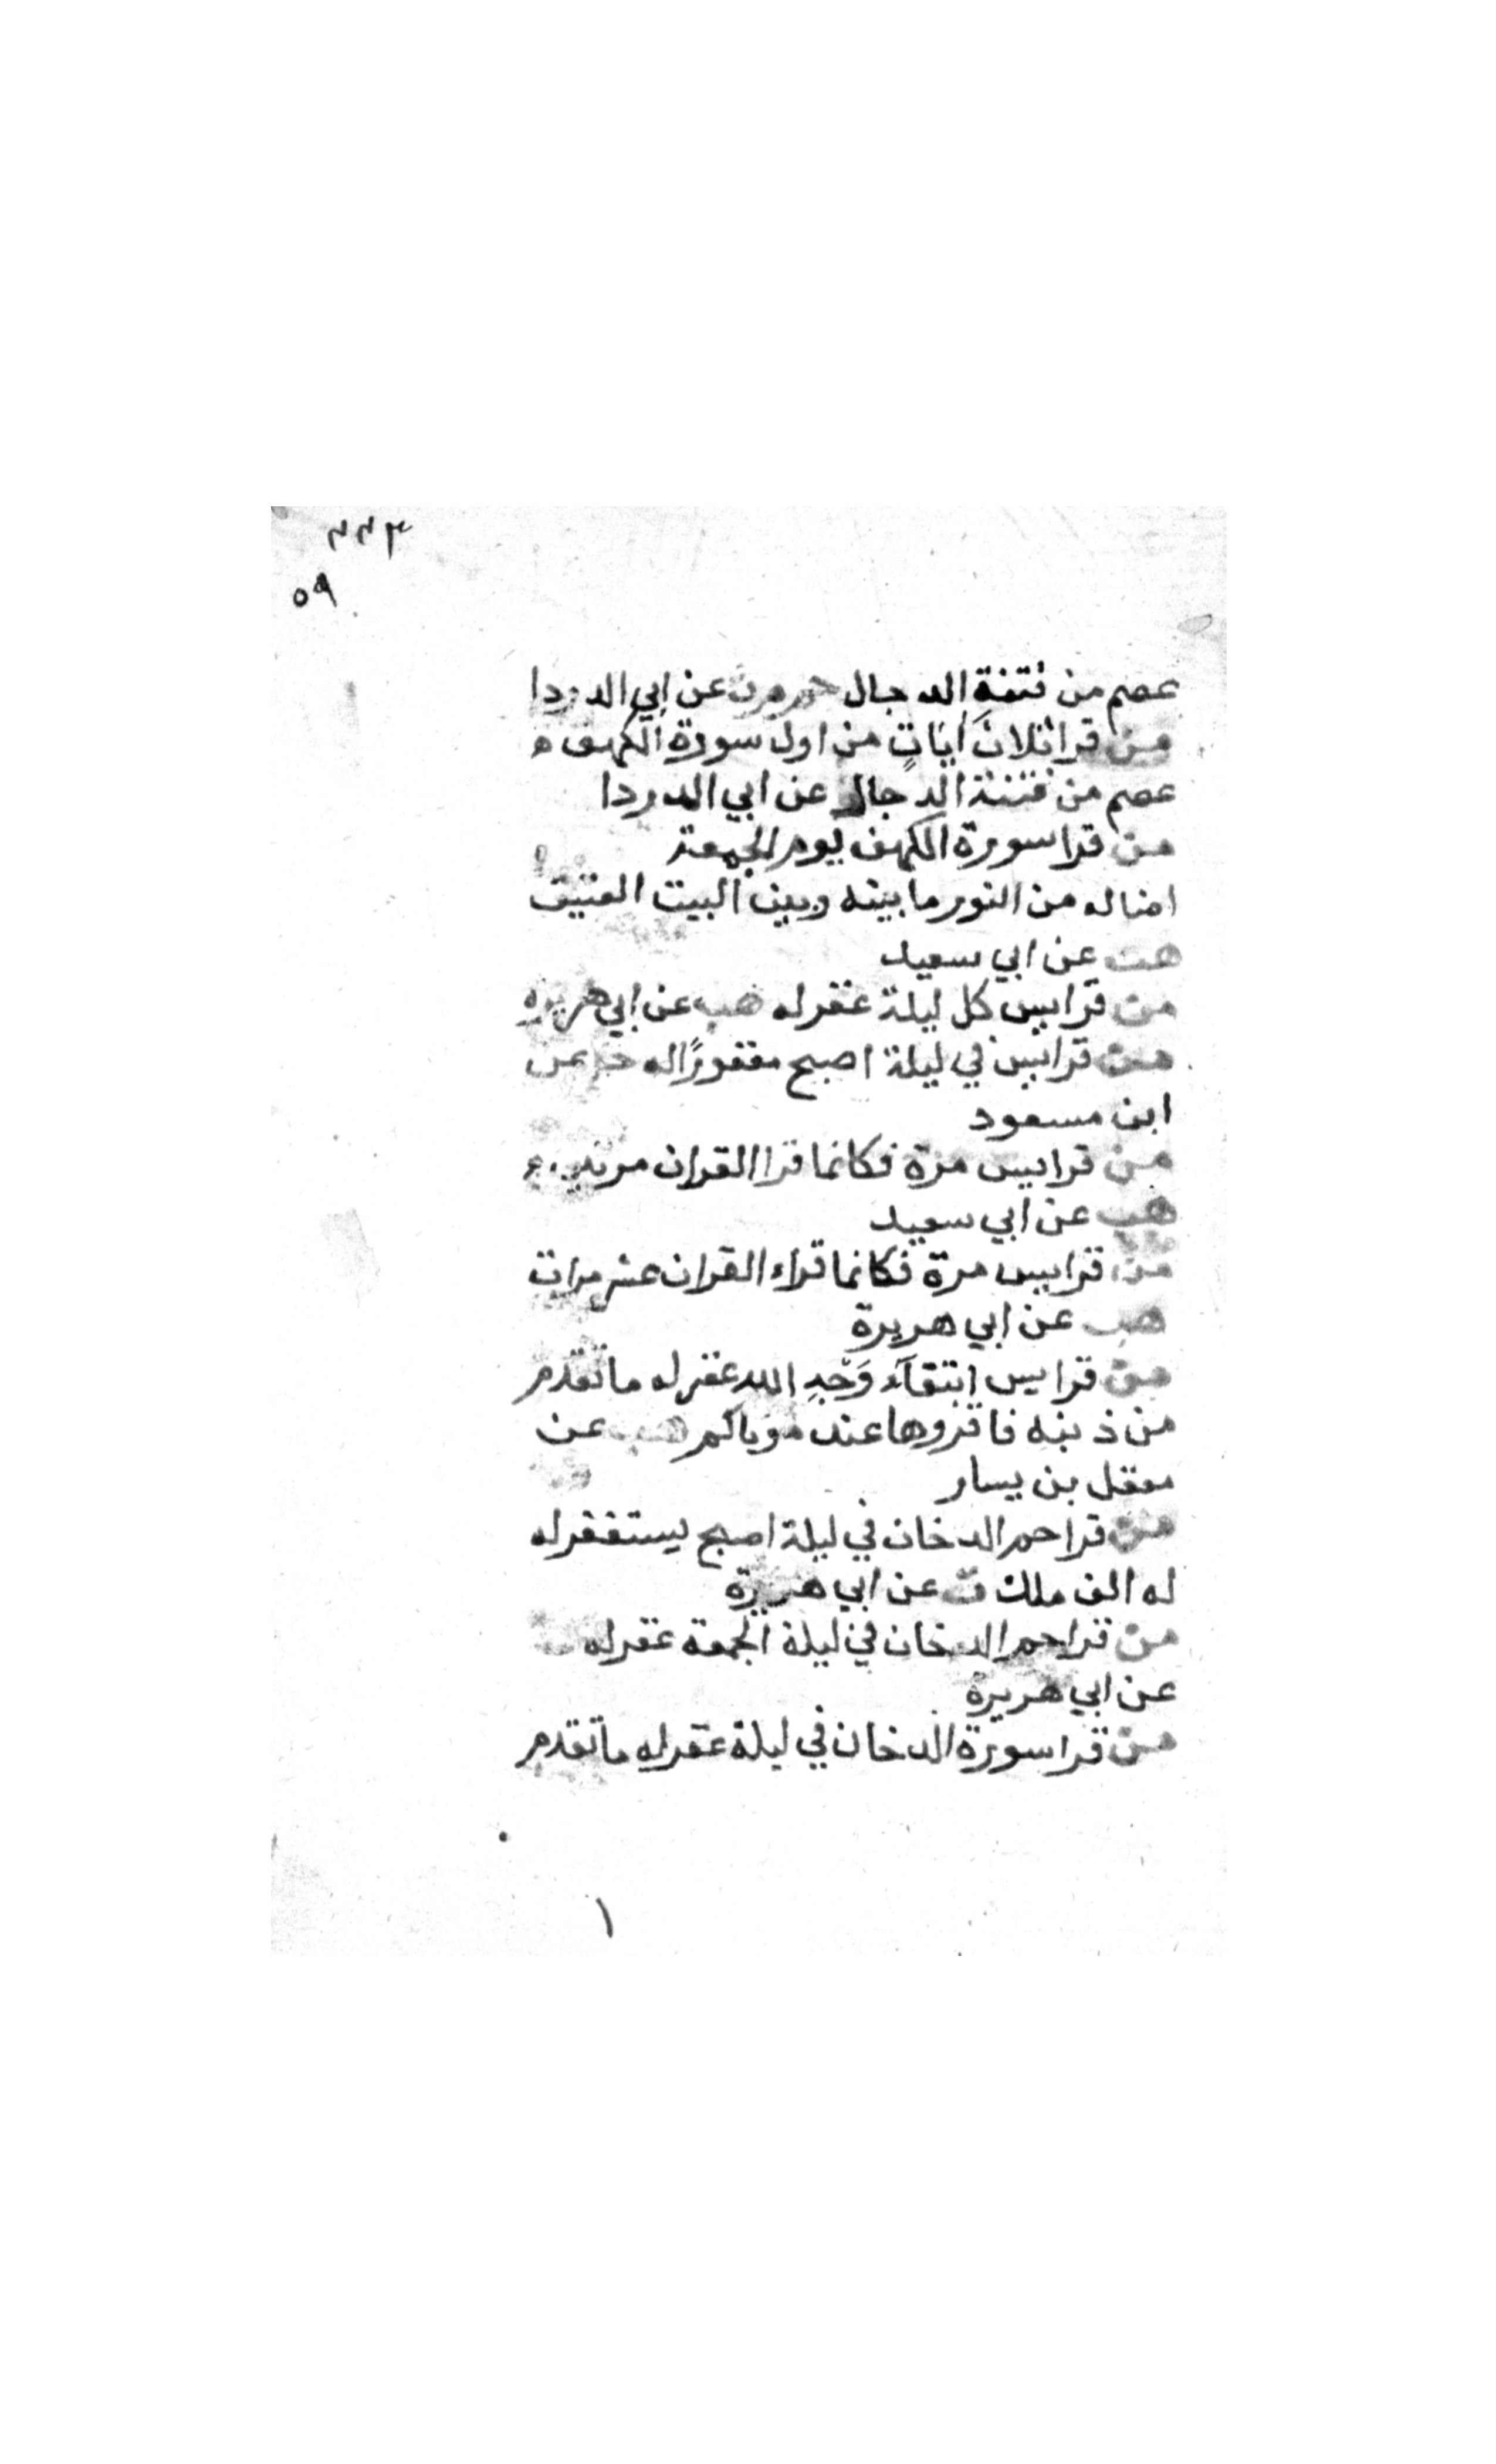 ٣٣٢
٥٩
عصم من فتنة الدجال حم م د ن عن ابي الدردا
من قرا ثلاث ايات من اول سورة الكهف
عصم من فتنة الدجال عن ابي الدردا
من قرا سورة الكهف يوم الجمعة
اضاله من النور ما بينه وبين البيت العتيق
هب عن ابي سعيد
من قرا يس كل ليلة غفر له هب عن ابي هريرة
من قرا يس في ليلة اصبح مغفورًا له حل عن
ابن مسعود
من قرا يس مرة فكانما قرا القران مرتين
هب عن ابي سعيد
من قرا يس مرة فكانما قراء القران عشر مرات
هب عن ابي هريرة
من قرا يس ابتغآء وَجْهِ الله غفر له ما تقدم
من ذنبه فاقروها عند موتاكم هب عن
معقل بن يسار
من قرا حم الدخان في ليلة اصبح يستغفر له
له الف ملك ت عن ابي هريرة
من قرا حم الدخان في ليلة الجمعة غفر له
عن ابي هريرة
من قرا سورة الدخان في ليلة غفر له ما تقدم
١